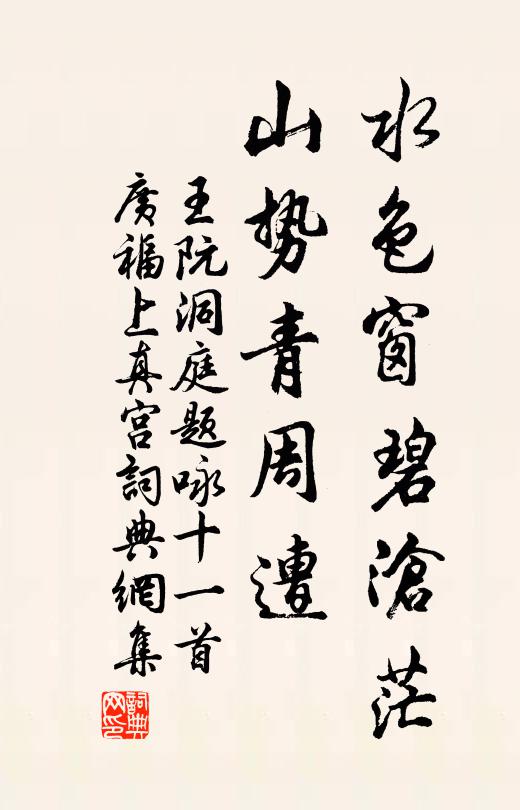 水色窗碧滄茫
山势青周遭
王阮洞庭題咏十一首
廣福上真宫詞典網集
詞典網印